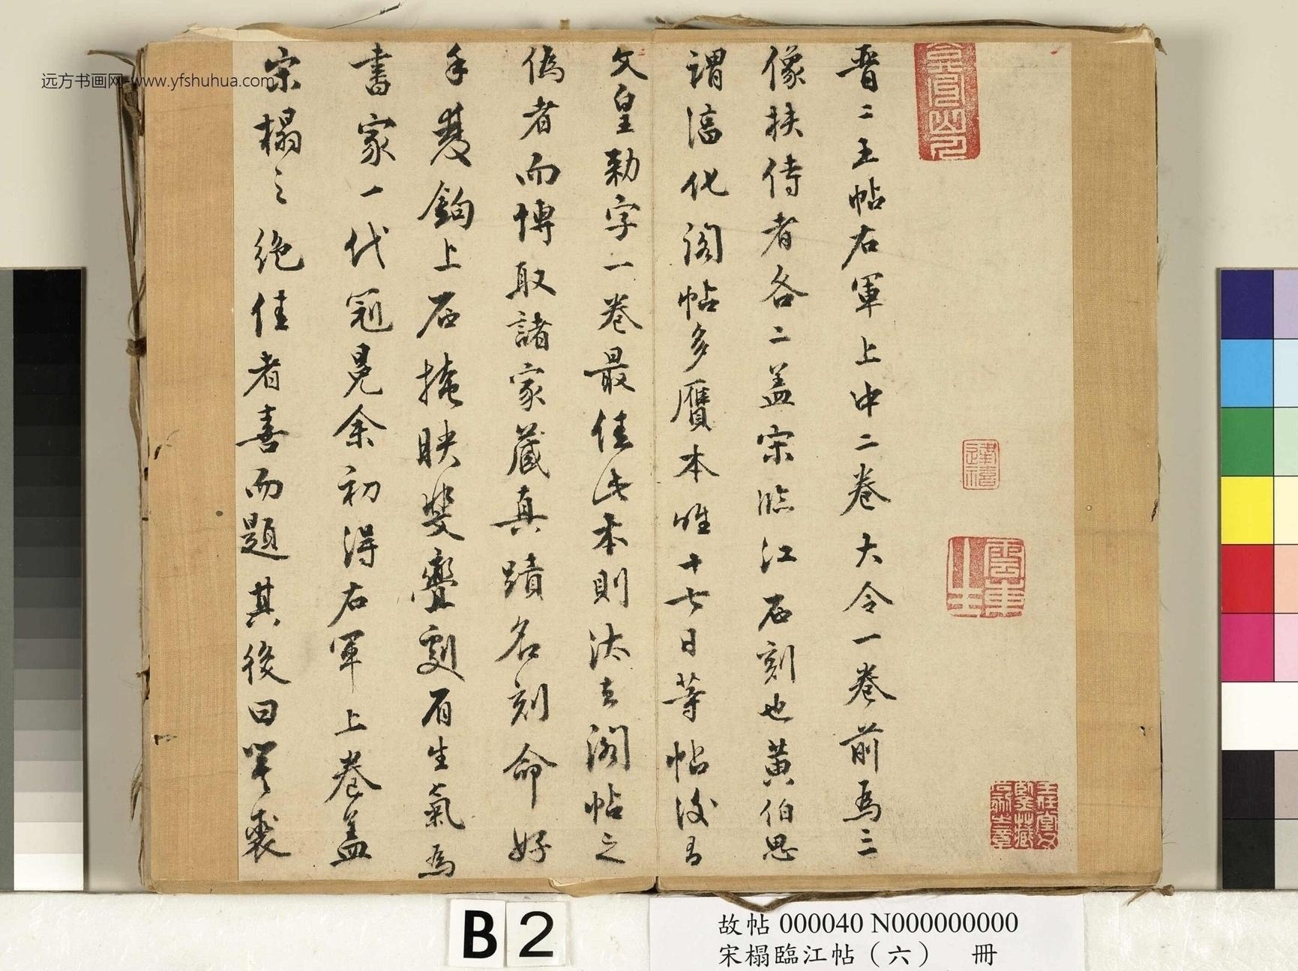 晉二王帖右軍上中二卷大令一卷前為三
像扶侍者各二盖宋臨江石刻也黃伯思
謂淳化閣帖多贋本唯十七日等帖後有
文皇勅字一卷最佳此本則汰去閣帖之
偽者而博取諸家藏真蹟名刻命好
手雙鉤上石掩映斐亹刻有生氣為
書家一代冠冕余初得右軍上卷盖
宋榻之絕佳者喜而題其後曰
远方书画网 www.yfshuhua.com
B2
故帖 000040 N000000000
宋榻臨江帖（六） 冊